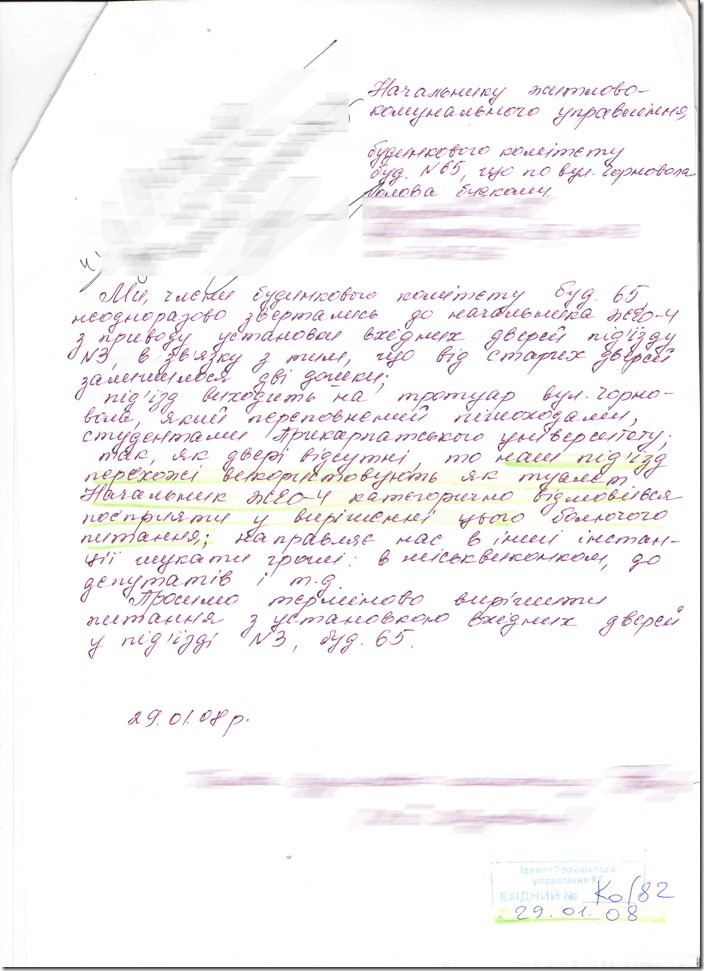 Начальнику житлово-
комунального управління,
будинкового комітету
буд. №65, що по вул. Чорновола
голова будкому
Ми, члени будинкового комітету буд. 65,
неодноразово звертались до начальника ЖЕО-4
з приводу установки вхідних дверей під'їзду
№3, в зв'язку з тим, що від старих дверей
залишилося дві дошки;
під'їзд виходить на тротуар вул. Чорно-
вола, який переповнений пішоходами,
студентами Прикарпатського університету;
так, як двері відсутні, то наш під'їзд
перехожі використовують як туалет.
Начальник ЖЕО-4 категорично відмовився
посприяти у вирішенні цього болючого
питання; направляє нас в інші інстан-
ції шукати гроші: в міськвиконком, до
депутатів і т.д.
Просимо терміново вирішити
питання з установкою вхідних дверей
у під'їзді №3, буд. 65.
29.01.08 р.
Івано-Франківське
управління
ВХІДНИЙ № Ко/82
29.01.08